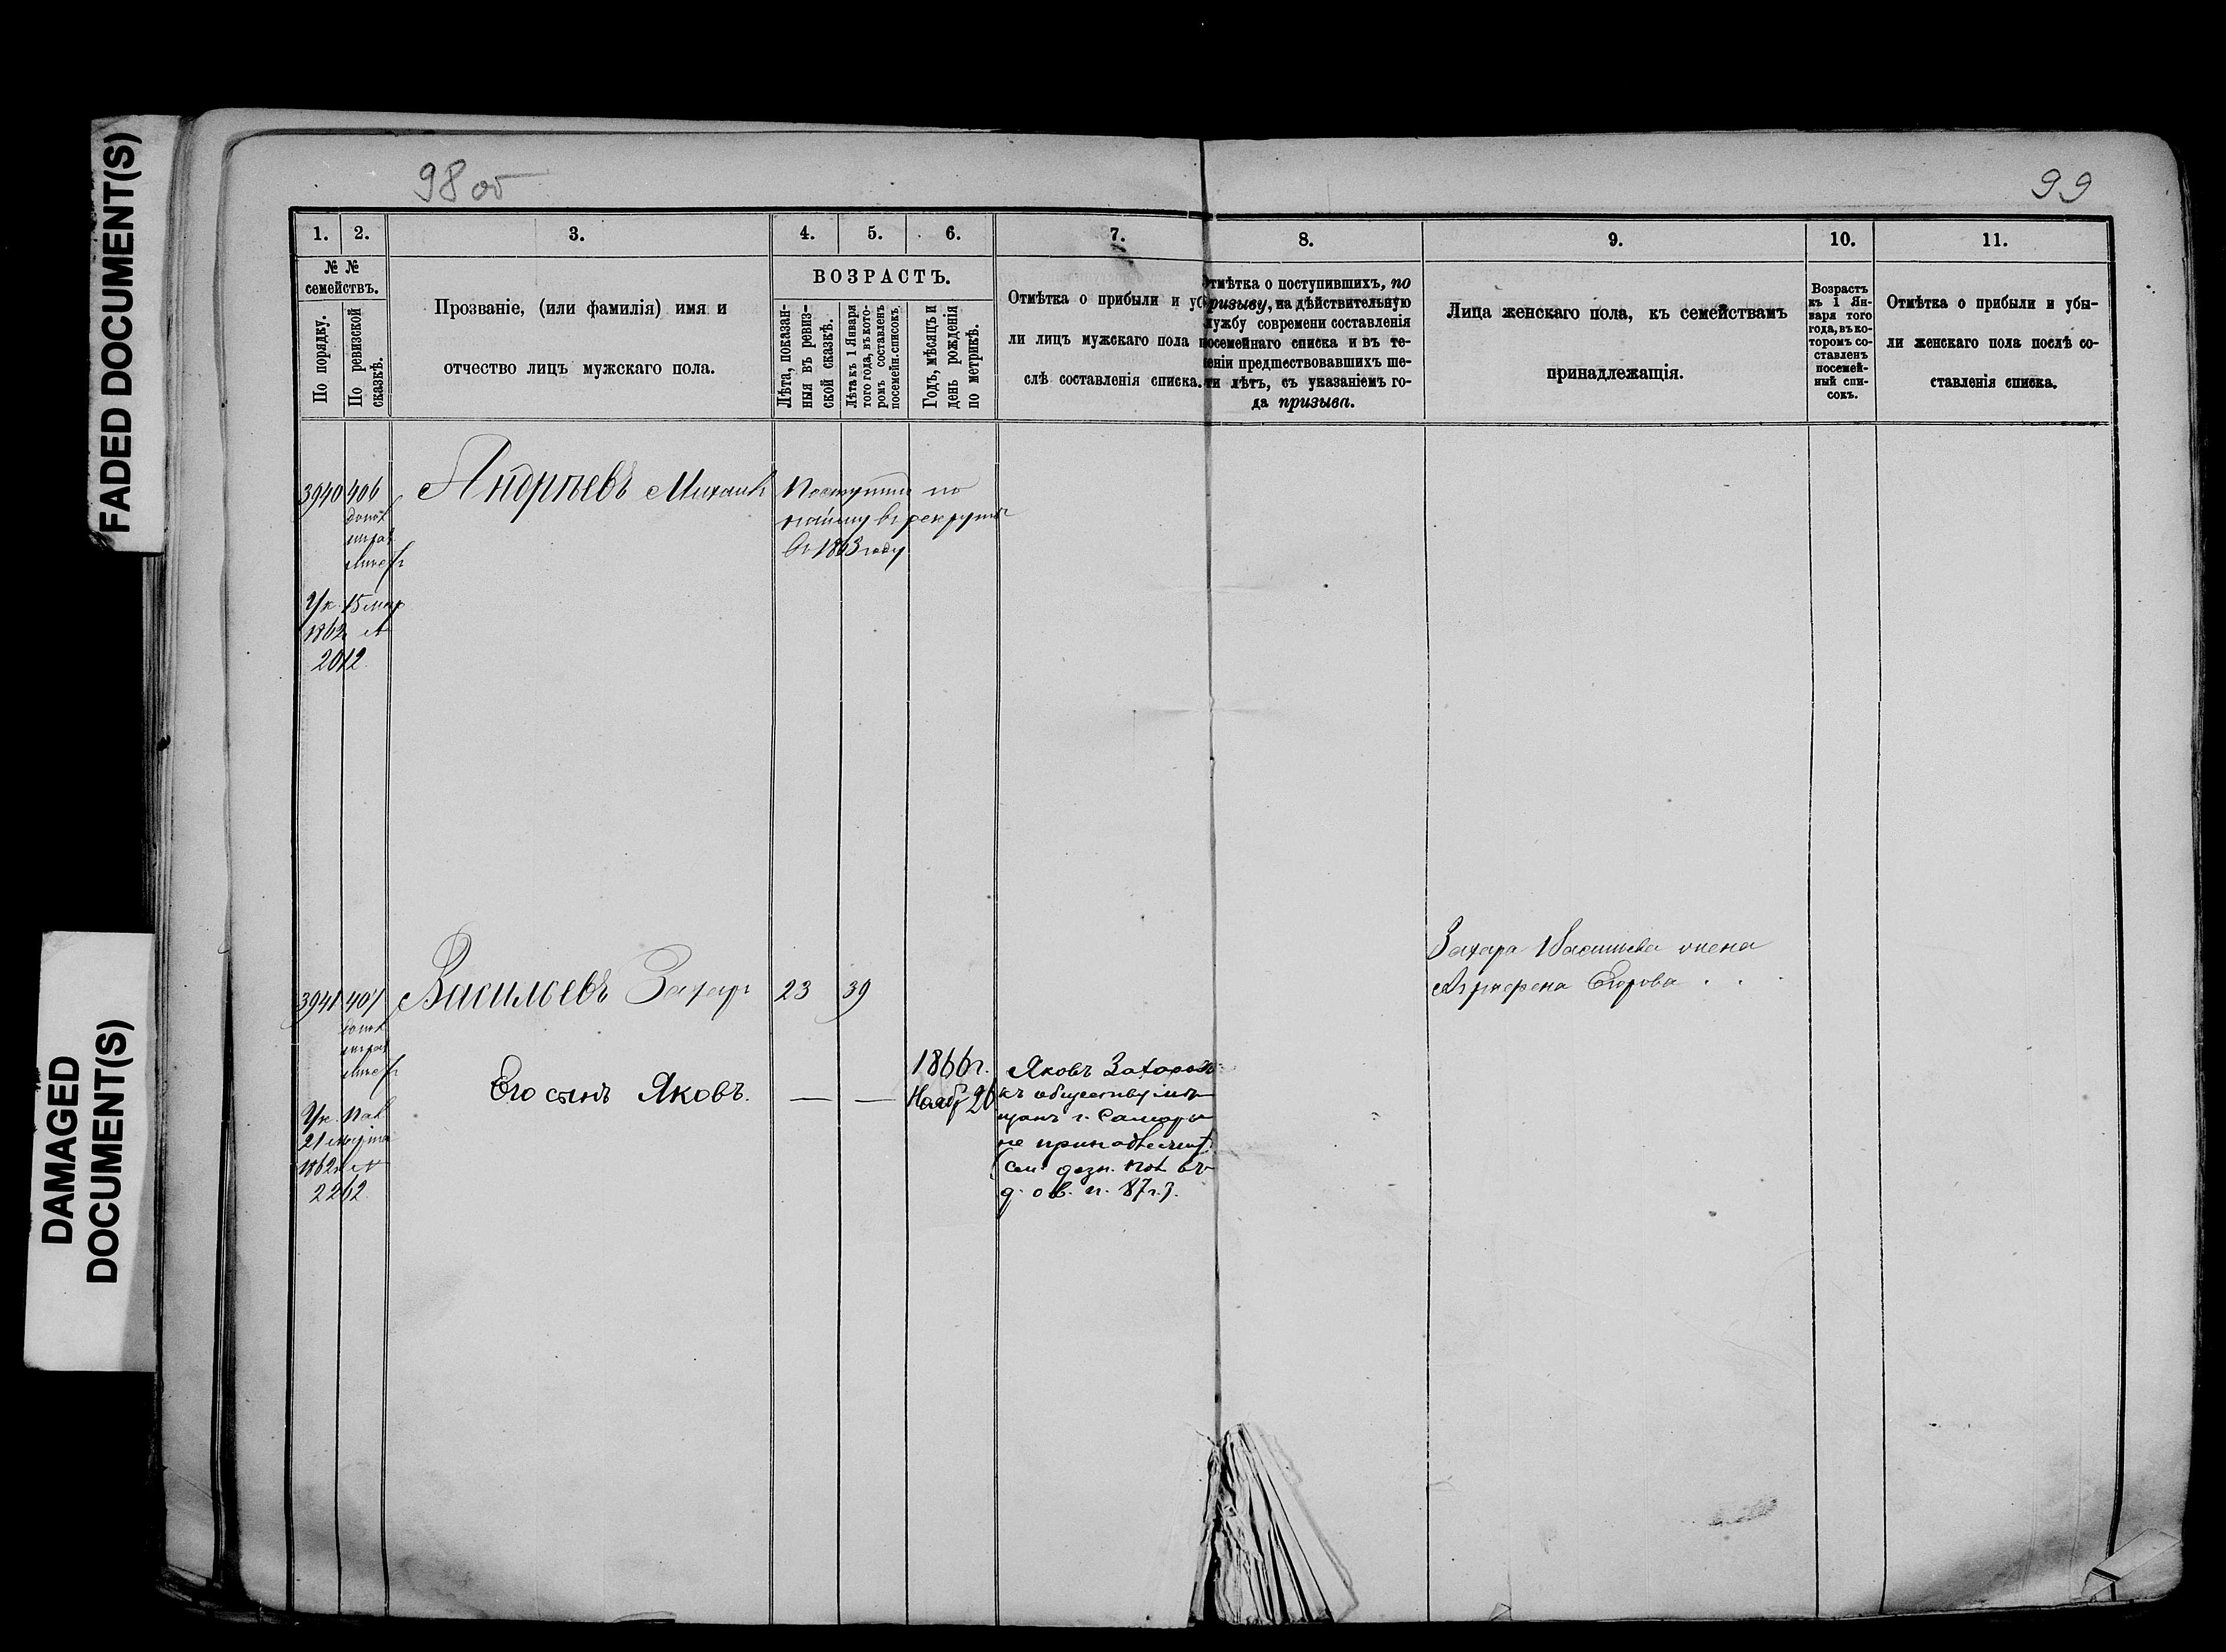 FADED DOCUMENT(S)
DAMAGED
DOCUMENT(S)
98 об
99
1. 2. 3. 4. 5. 6. 7. 8. 9. 10. 11.
№ №
семействъ.
По порядку.
По ревизской
сказкѣ.
Прозваніе, (или фамилія) имя и
отчество лицъ мужскаго пола.
ВОЗРАСТЪ.
Лѣта, показан-
ныя въ ревиз-
ской сказкѣ.
Лѣта къ 1 Января
того года, въ кото-
ромъ составленъ
посемейн. списокъ
Годъ, мѣсяцъ и
день рожденія
по метрикѣ.
Отмѣтка о прибыли и у
ли лицъ мужскаго пола
слѣ составленія списка.
Отмѣтка о поступившихъ, по
призыву, на дѣйствительную
лужбу современи составленія
посемейнаго списка и въ те-
еніи предшествовавшихъ ше-
ти лѣтъ, съ указаніемъ го-
да призыва.
Лица женскаго пола, къ семействамъ
принадлежащія.
Возрастъ
къ 1 Ян-
варя того
года, въ ко-
торомъ со-
ставленъ
посемей-
ный спи-
сокъ.
Отмѣтка о прибыли и убы-
ли женскаго пола послѣ со-
ставленія списка.
3940 406 Андрѣевъ Михаилъ Поступилъ по
найму въ рекруты
въ 1863 году
Ук. 15 мар
1862 №
2012.
Захара Васильева жена
Агрифена Егорова
3941 407 Васильевъ Захаръ 23 39
Его сынъ Яковъ. — — 1866 г.
Нояб. 26
Яковъ Захаровъ
къ обществу мѣ-
щанъ г. Самары
не принадлежитъ.
Ук. Пал
21 марта
1862 №
2262.